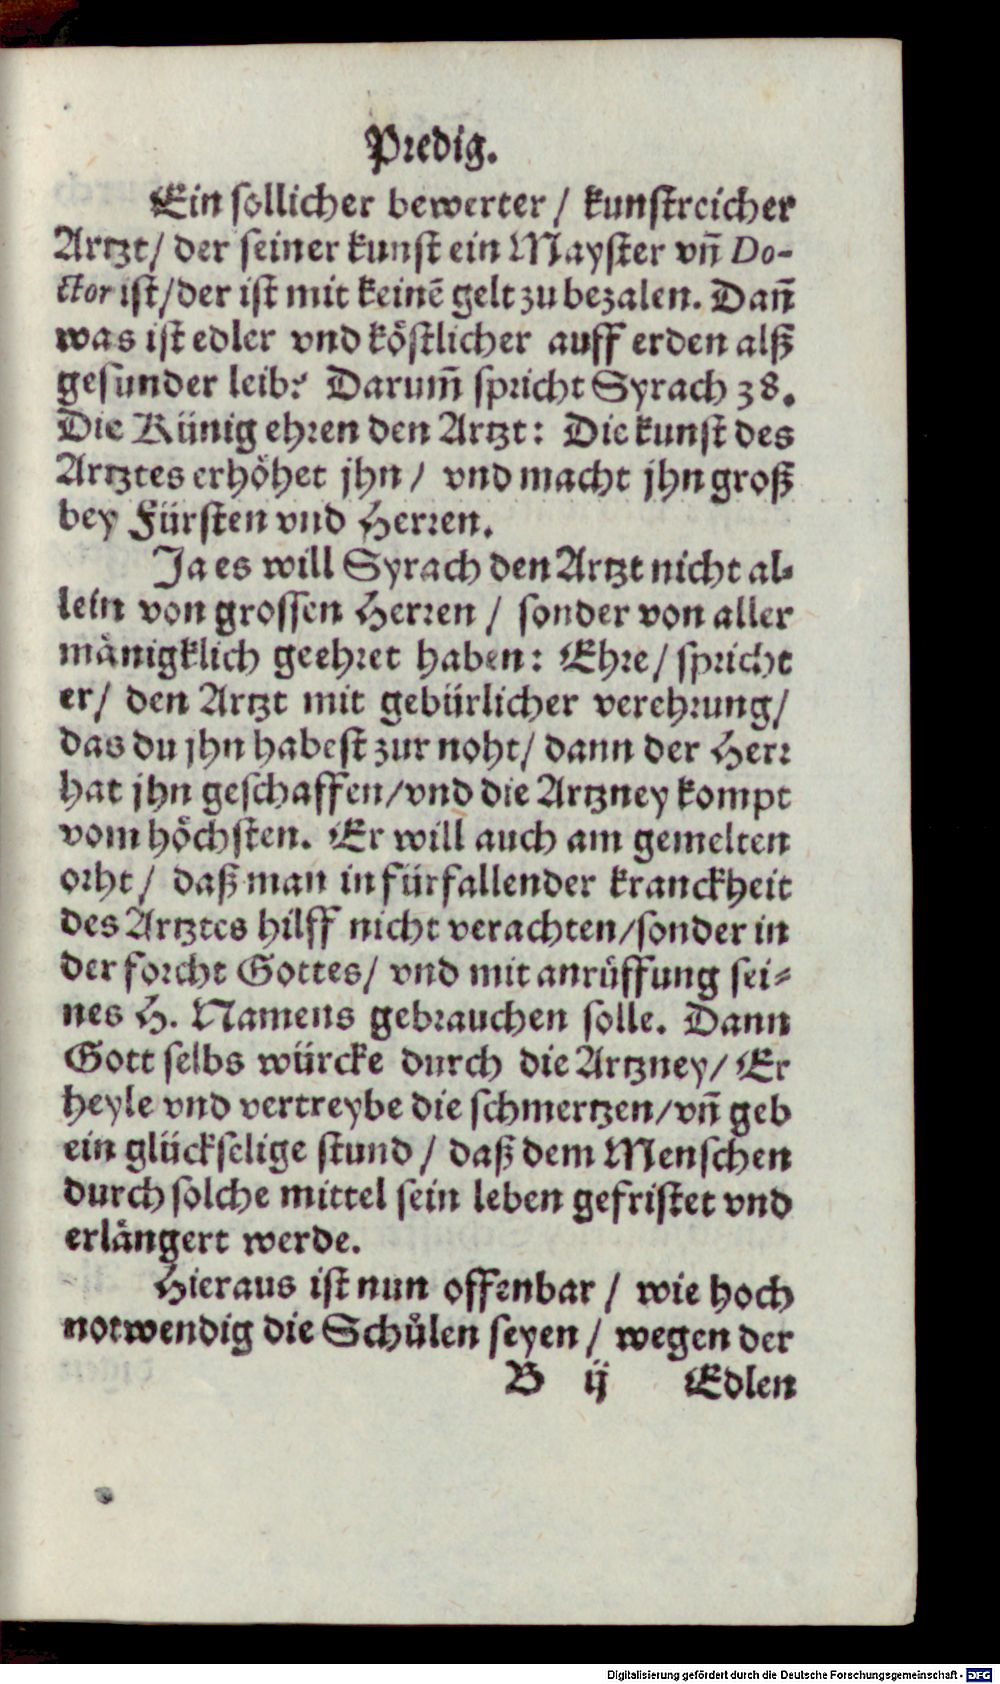 Predig.
Ein sollicher bewerter / kunstreicher
Artzt / der seiner kunst ein Mayster vñ Do-
ctor ist / der ist mit keinẽ gelt zu bezalen. Dañ
was ist edler vnd köstlicher auff erden alß
gesunder leib? Darum̃ spricht Syrach 38.
Die Künig ehren den Artzt: Die kunst des
Artztes erhöhet jhn / vnd macht jhn groß
bey Fürsten vnd Herren.
Ja es will Syrach den Artzt nicht al-
lein von grossen Herren / sonder von aller
mänigklich geehret haben: Ehre / spricht
er / den Artzt mit gebürlicher verehrung /
das du jhn habest zur noht / dann der Herr
hat jhn geschaffen / vnd die Artzney kompt
vom höchsten. Er will auch am gemelten
orht / daß man in fürfallender kranckheit
des Artztes hilff nicht verachten / sonder in
der forcht Gottes / vnd mit anrüffung sei-
nes H. Namens gebrauchen solle. Dann
Gott selbs würcke durch die Artzney / Er
heyle vnd vertreybe die schmertzen / vñ geb
ein glückselige stund / daß dem Menschen
durch solche mittel sein leben gefristet vnd
erlängert werde.
Hieraus ist nun offenbar / wie hoch
notwendig die Schůlen seyen / wegen der
B ij Edlen
Digitalisierung gefördert durch die Deutsche Forschungsgemeinschaft - DFG